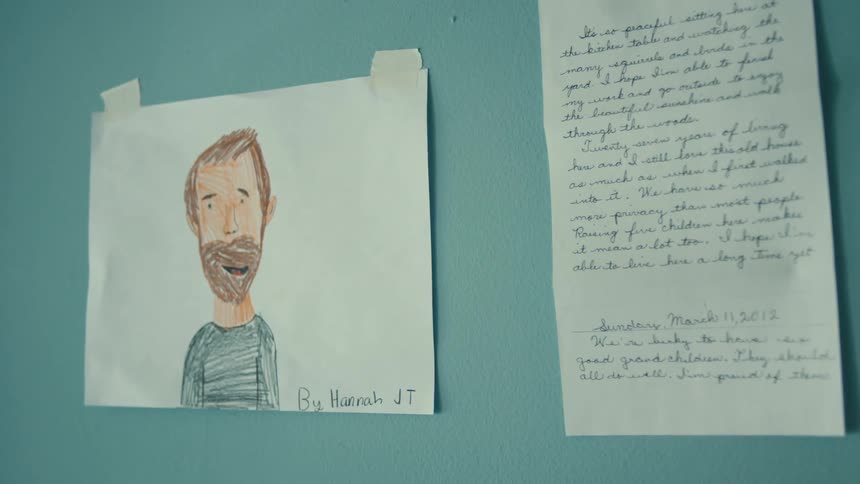 By Hannah JT
It's so peaceful sitting here at
the kitchen table and watching the
many squirrels and birds in the
yard. I hope I'm able to finish
my work and go outside to enjoy
the beautiful sunshine and walk
through the woods.
Twenty seven years of living
here and I still love this old house
as much as when I first walked
into it. We have so much
more privacy than most people
Raising five children here makes
it mean a lot too. I hope I'm
able to live here a long time yet
Sunday, March 11, 2012
We're lucky to have six
good grand children. They should
all do well. I'm proud of them